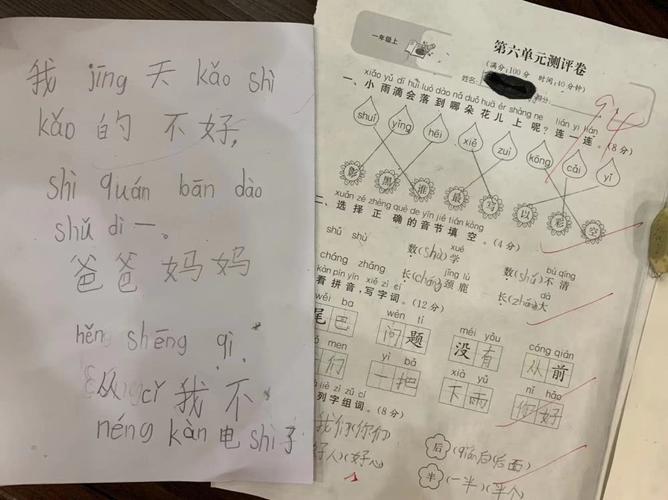 我 jīng 天 kǎo shì
kǎo 的 不 好,
shì quán bān dào
shǔ dì 一。
爸 爸 妈 妈
hěng shēng qì,
从 cǐ 我 不
néng kàn 电 shì 了
一年级上
第六单元测评卷
(满分:100分 时间:40分钟)
姓名: 得分:
94
xiǎo yǔ dī huì luò dào nǎ duǒ huā ér shàng ne lián yi lián
一、小雨滴会落到哪朵花儿上呢?连一连。(8分)
shuǐ yǐng hēi xiě zuì kōng cǎi yǐ
影 黑 谁 最 写 以 彩 空
xuǎn zé zhèng què de yīn jié tián kòng
二、选择正确的音节填空。(4分)
shǔ shù xué bù qīng
数(shù)学 数(shǔ)不清
cháng zhǎng jǐng lù dà
长(cháng)颈鹿 长(zhǎng)大
kàn pīn yīn xiě zì cí
看拼音,写字词。(12分)
wěi ba wèn tí méi yǒu cóng qián
尾巴 问题 没有 从前
men yì bǎ xià yǔ nǐ hǎo
们 一把 下雨 你好
列字组词。(8分)
我们 你们 后 (后面)
好人 半 (一半)(半个)